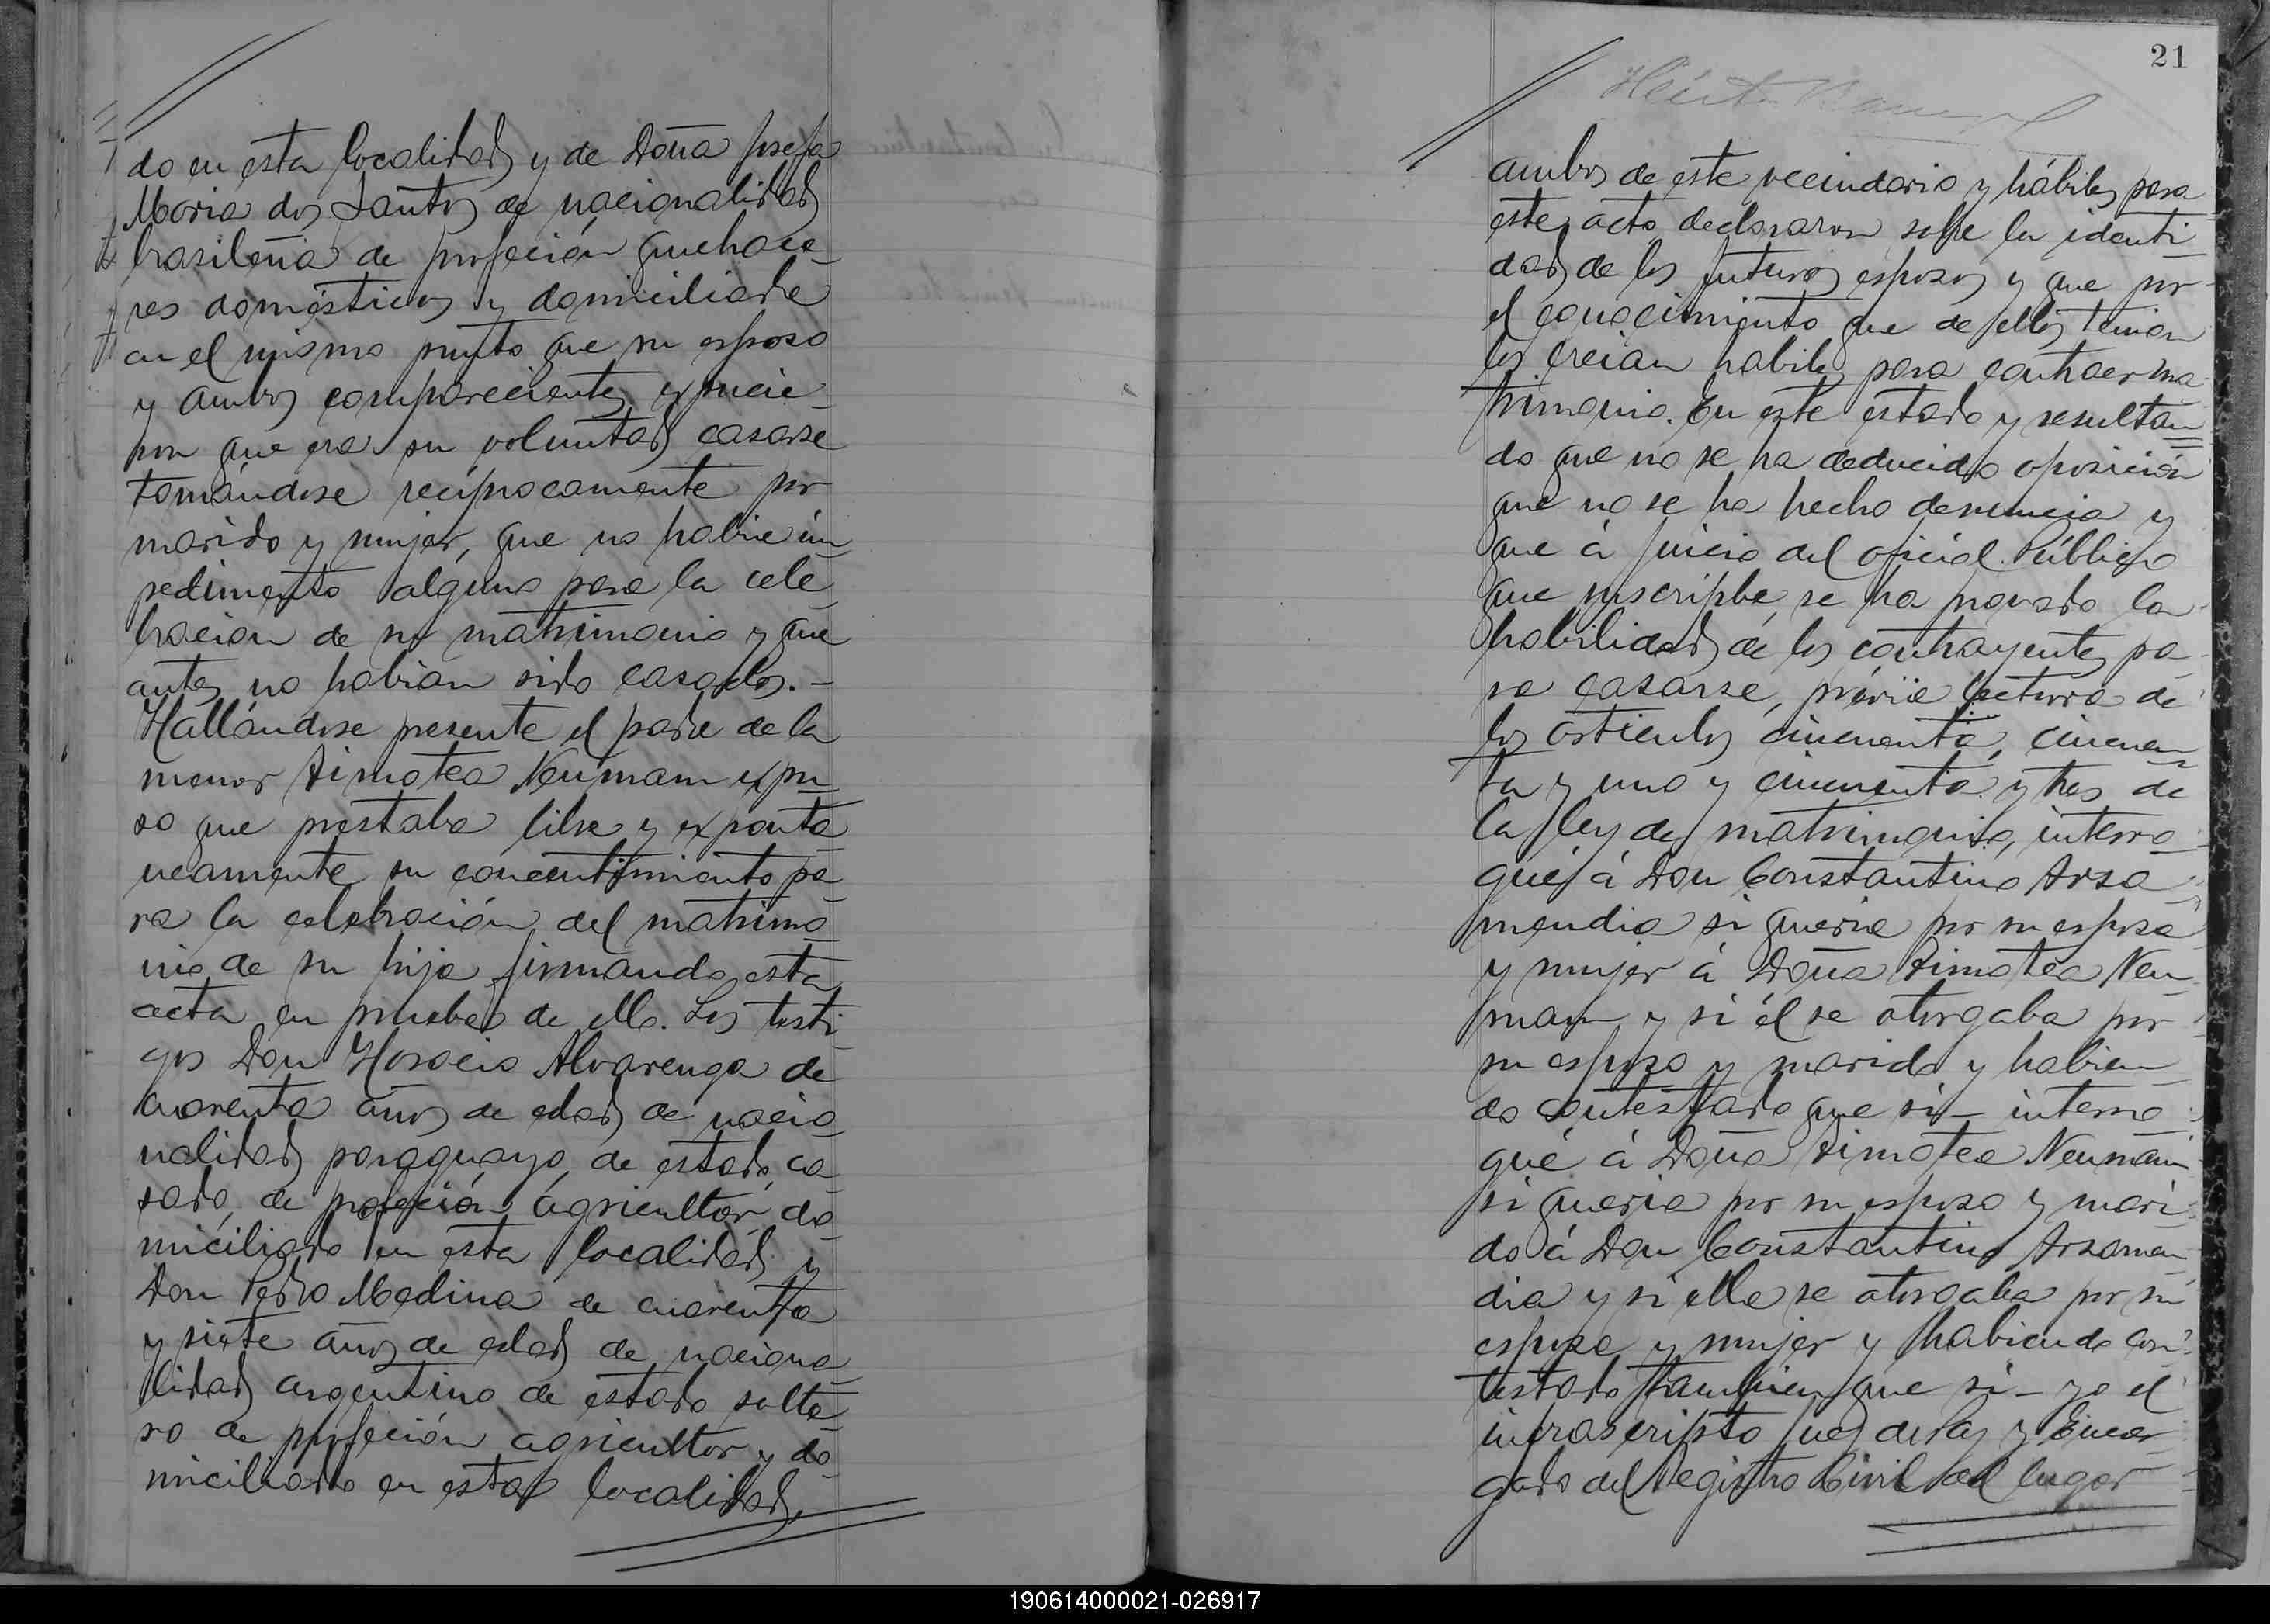 do en esta localidad y de Doña Josefa
Maria dos Santos de nacionalidad
brasileña de profeción quehace-
res domésticos y domiciliada
en el mismo punto que su esposo
y ambos comparecientes expucie-
ron que era su voluntad casarse
tomándose recíprocamente por
marido y mujer, que no habia im-
pedimento alguno para la cele-
bracion de su matrimonio y que
antes no habian sido casados.-
Hallándose presente el padre de la
menor Timotea Neumann expu-
so que prestaba libre y exponta-
neamente su concentimiento pa-
ra la celebración del matrimo-
nio de su hija firmando esta
acta en prueba de ello. Los testi-
gos Don Horacio Alvarenga de
cuarenta años de edad de nacio-
nalidad paraguayo, de estado ca-
sado, de profeción agricultor, do-
miciliado en esta localidad y
Don Pedro Medina de cuarenta
y siete años de edad de naciona-
lidad argentino de estado solte-
ro de profeción agricultor y do-
miciliado en esta localidad,
21
ambos de este vecindario y hábiles para
este acto declararon sobre la identi-
dad de los futuros esposos y que por
el conocimiento que de ellos tenian
los creian habiles para contraer ma-
trimonio. En este estado y resultan-
do que no se ha deducido oposición
que no se ha hecho denuncia y
que á juicio del oficial Público
que inscribe se ha provado la
habilidad de los contrayentes pa-
ra casarse, prévia lectura de
los articulos cincuenta, cincuen-
ta y uno y cincuenta y tres de
la ley de matrimonio, interro-
gué á Don Constantino Arsa-
mendia si queria por su esposa
y mujer á Doña Timotea Neu-
mann y si él se otorgaba por
su esposo y marido y habien-
do contestado que si- interro-
gué á Doña Timotea Neumann
si queria por su esposo y mari-
do á Don Constantino Arsamen-
dia y si ella se otorgaba por su
esposa y mujer y habiendo con-
testado tambien que si- yo el
infrascripto Juez de Paz y Encar-
gado del Registro Civil del lugar
190614000021-026917